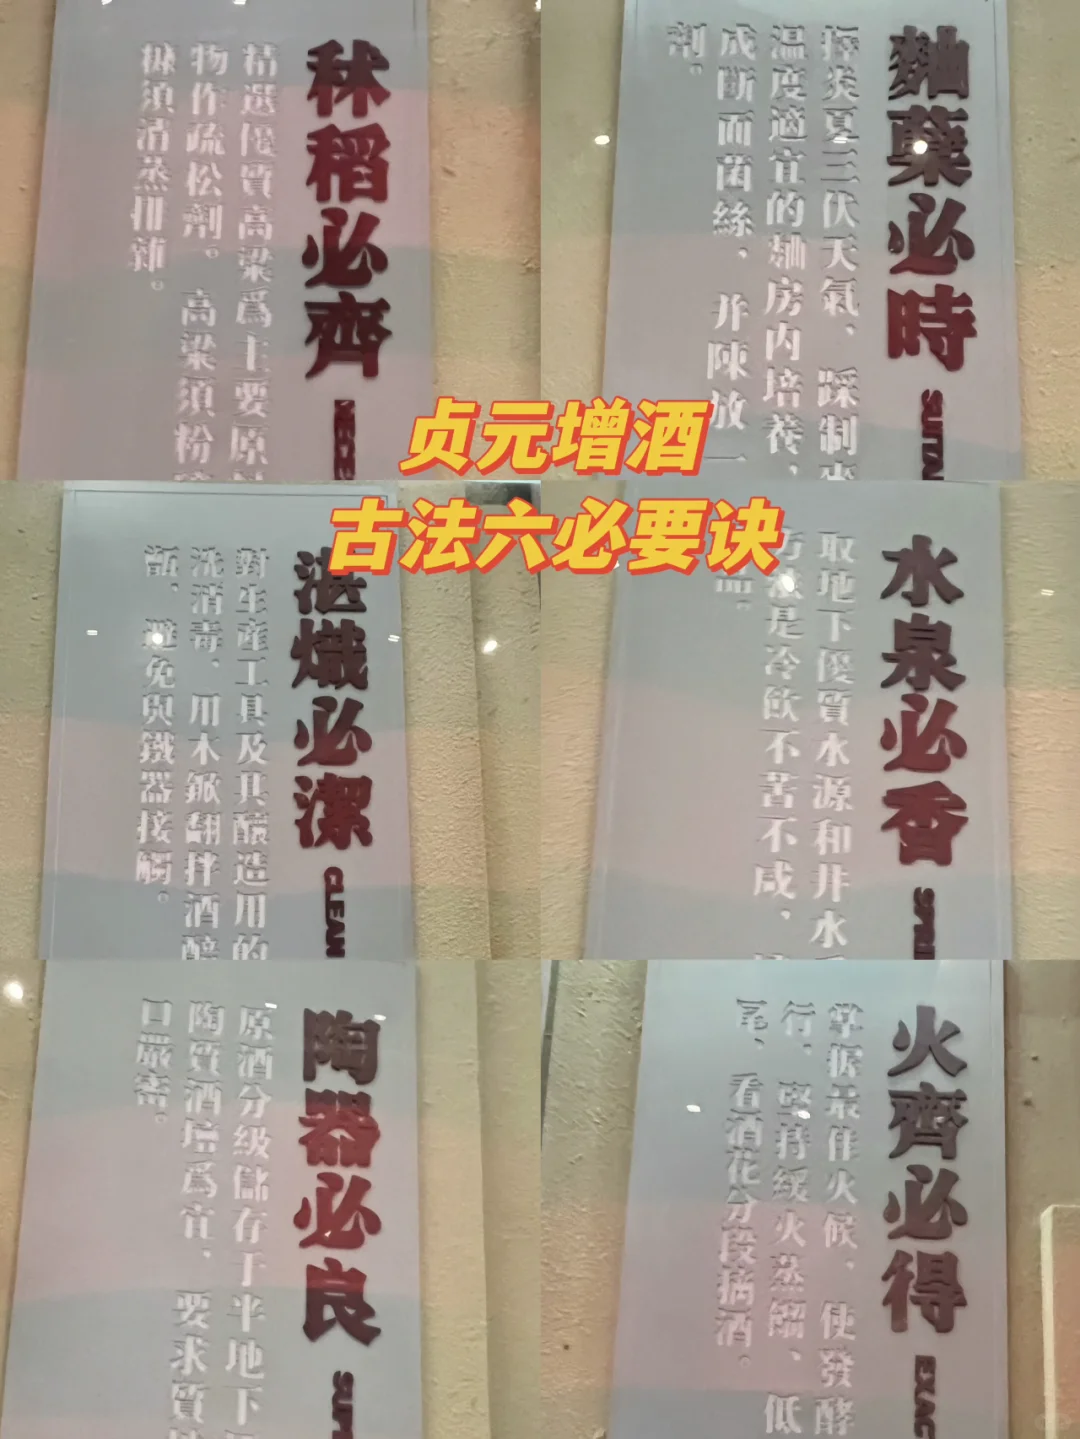 贞元增酒
古法六必要诀
秫稻必齊
精選優質高粱爲主要原
物作疏松劑。高粱須粉
糠須清蒸排雜。
麯蘖必時
SUITA
擇炎夏三伏天氣、踩制
温度適宜的麯房内培養、
成斷面菌絲、并陳放一
劑。
湛熾必潔
CLEAN
對生産工具及其釀造用的
洗消毒、用木鍁翻拌酒醅
甑、避免與鐵器接觸。
水泉必香
取地下優質水源和井水
是冷飲不苦不咸、
陶器必良
SUP
原酒分級儲存于半地下
陶質酒壇爲宜、要求質
口嚴密。
火齊必得
EXAC
掌握最佳火候、使發酵
行、堅持緩火蒸餾、低
尾、看酒花分段摘酒。